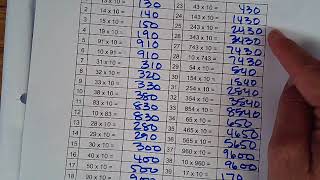 13 x 10 = 130 23 43 x 10 = 430
2 14 x 10 = 140 24 143 x 10 = 1430
3 15 x 10 = 150 25 243 x 10 = 2430
4 19 x 10 = 190 26 343 x 10 = 3430
5 91 x 10 = 910 27 743 x 10 = 7430
6 10 x 91 = 910 28 10 x 743 = 7430
7 31 x 10 = 310 29 54 x 10 = 540
8 32 x 10 = 320 30 154 x 10 = 1540
9 33 x 10 = 330 31 254 x 10 = 2540
10 38 x 10 = 380 32 354 x 10 = 3540
11 83 x 10 = 830 33 854 x 10 = 8540
12 10 x 83 = 830 34 65 x 10 = 650
13 28 x 10 = 280 35 465 x 10 = 4650
14 29 x 10 = 290 36 565 x 10 = 5650
15 30 x 10 = 300 37 960 x 10 = 9600
16 40 x 10 = 400 38 10 x 960 = 9600
17 50 x 10 = 500 39 17 x 10 = 170
18 90 x 10 = 900